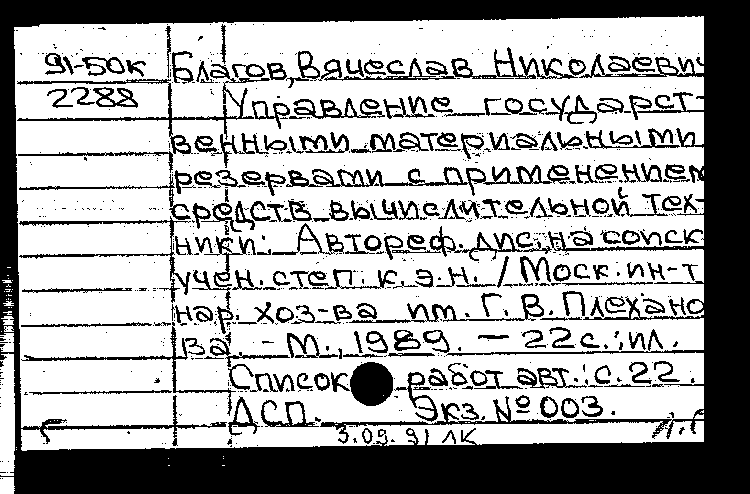 91-50к Благов, Вячеслав Николаевич
2288 Управление государст-
венными материальными
резервами с применением
средств вычислительной тех-
ники: Автореф. дис. на соиск
учен. степ. к. э. н. / Моск. ин-т
нар. хоз-ва им. Г. В. Плехано
ва. - М., 1989. - 22 с.: ил.
Список работ авт.: с. 22.
ДСП. Экз. № 003.
3.09.91 ЛК